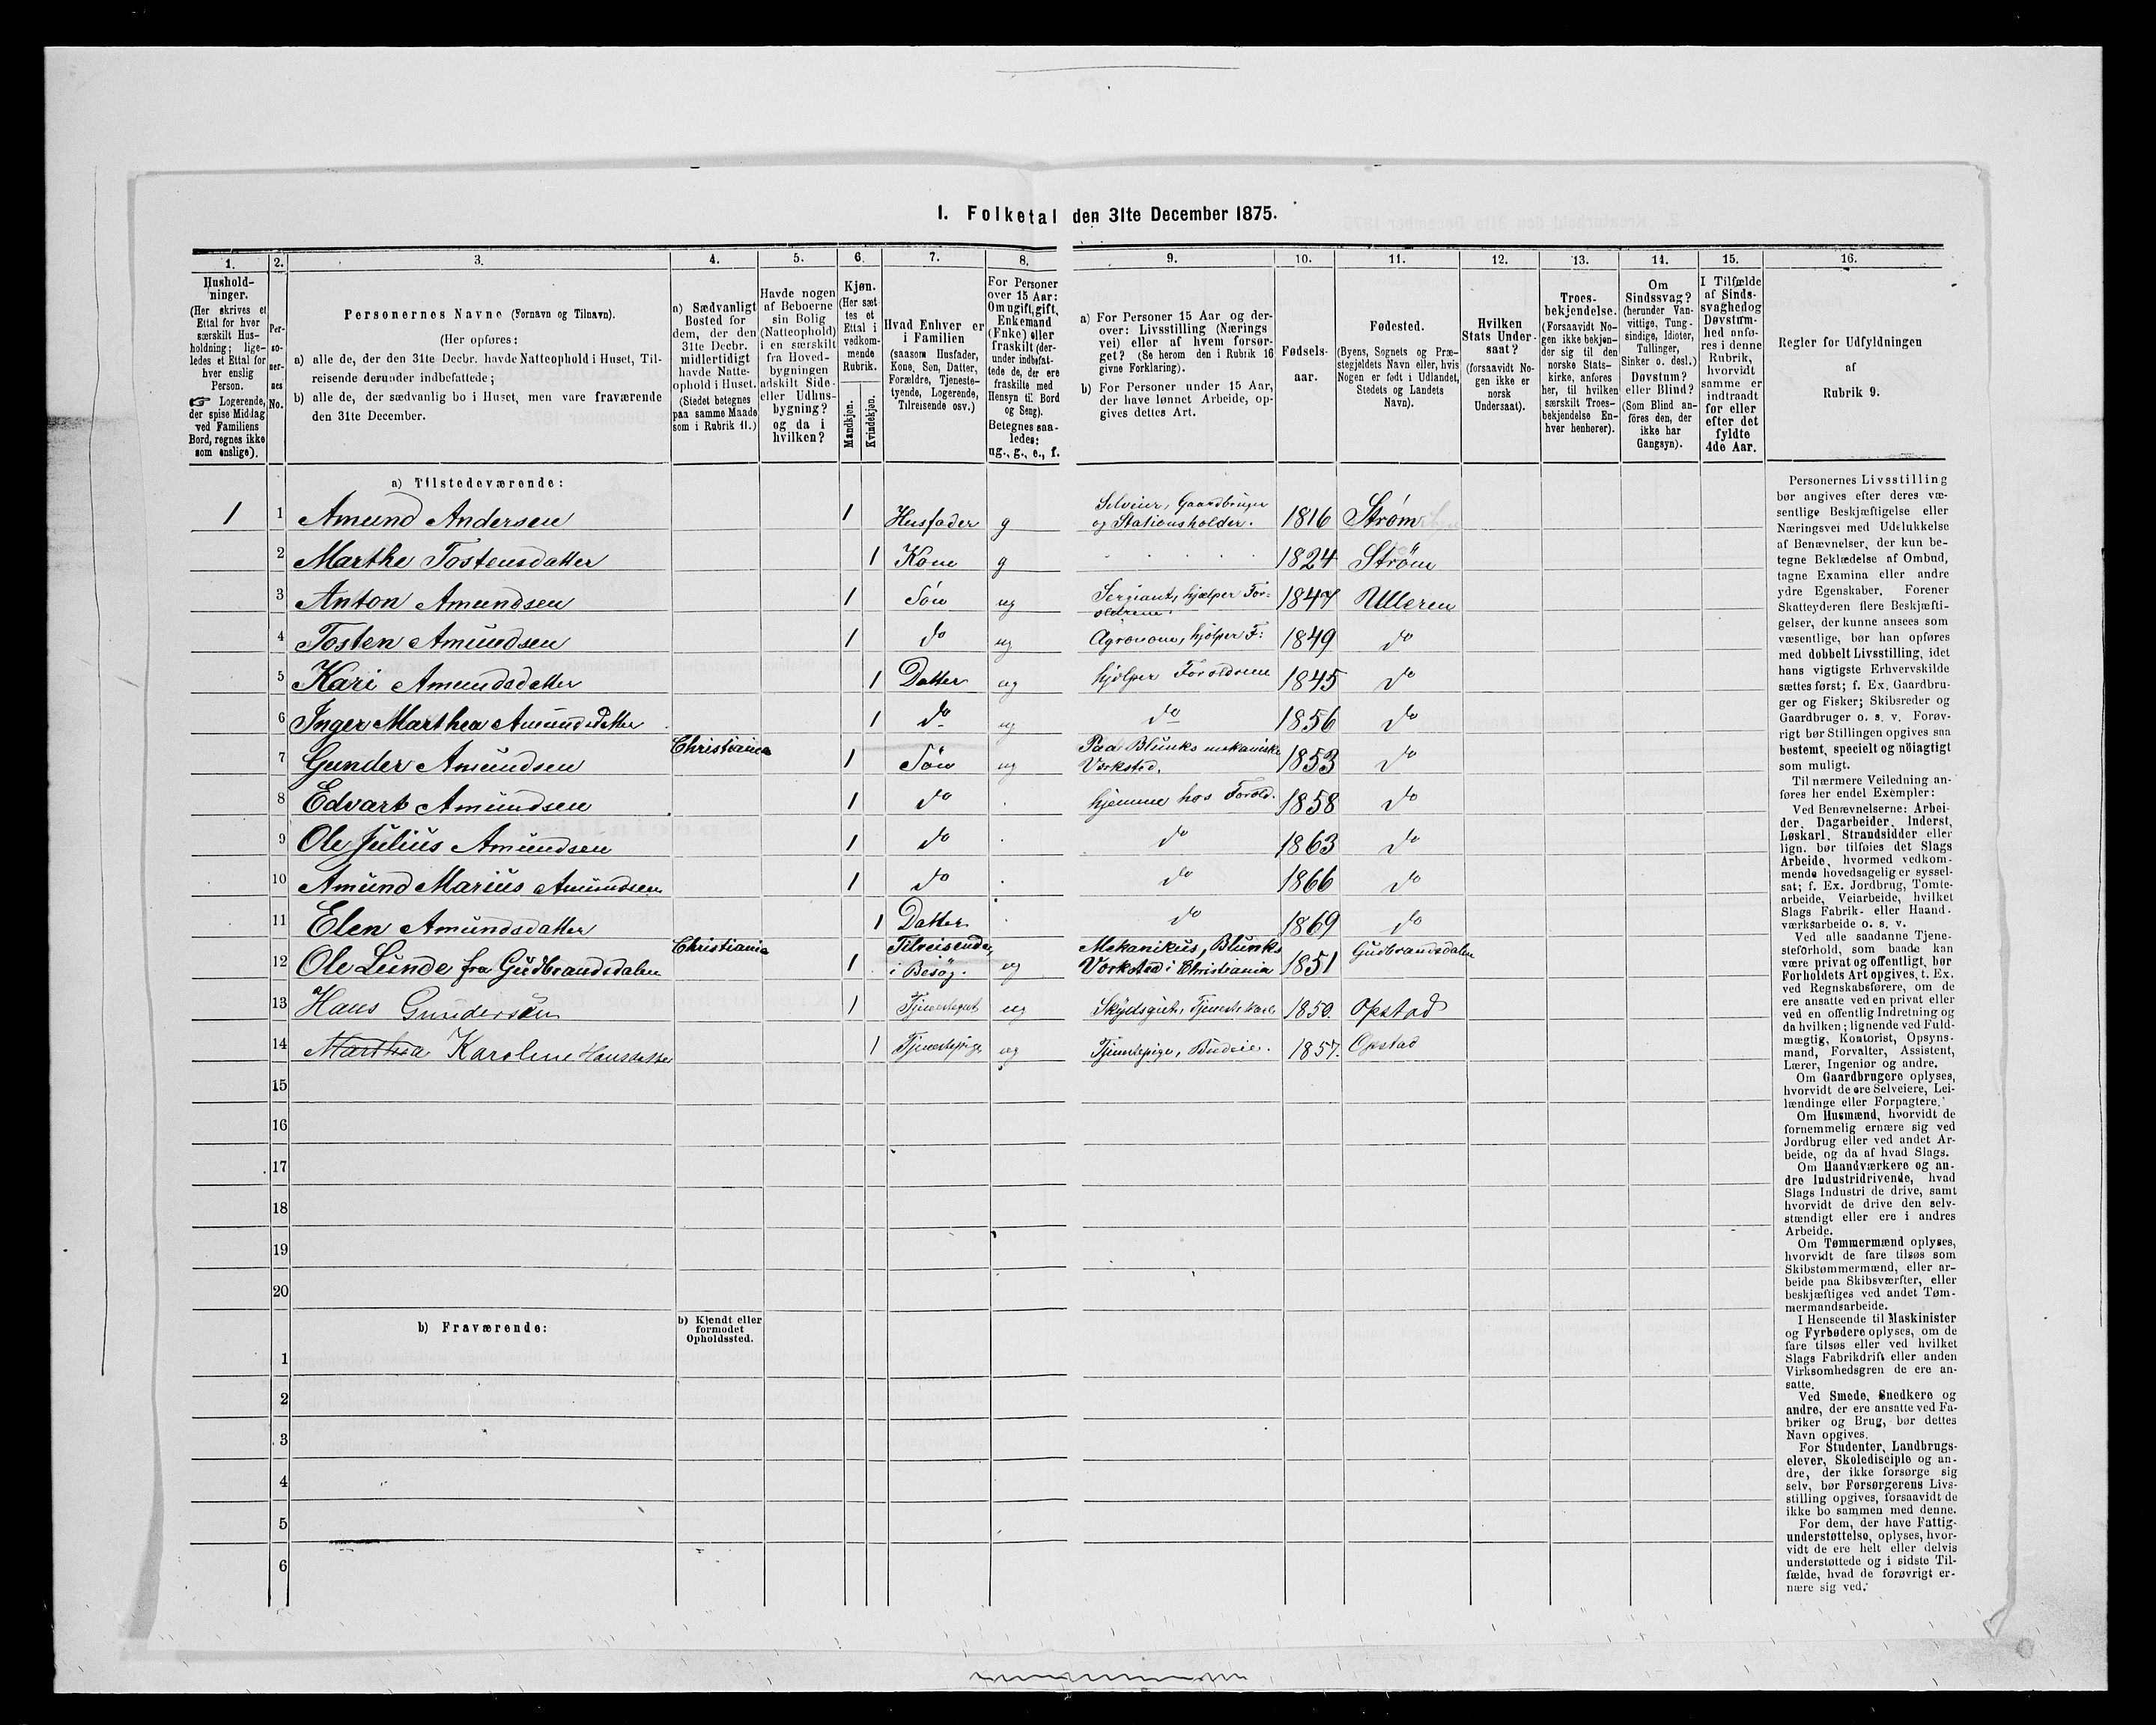 1. Folketal den 31te December 1875.
1. 2. 3. 4. 5. 6. 7. 8. 9. 10. 11. 12. 13. 14. 15. 16.
Hushold-
ninger.
(Her skrives et
Ettal for hver
særskilt Hus-
holdning; lige-
ledes et Ettal for
hver enslig
Person.
☞ Logerende,
der spise Middag
ved Familiens
Bord, regnes ikke
som enslige).
Per-
so-
ner-
nes
No.
Personernes Navne (Fornavn og Tilnavn).
(Her opføres:
a) alle de, der den 31te Decbr. havde Natteophold i Huset, Til-
reisende derunder indbefattede;
b) alle de, der sædvanlig bo i Huset, men vare fraværende
den 31te December.
a) Sædvanligt
Bosted for
dem, der den
31te Decbr.
midlertidigt
havde Natte-
ophold i Huset.
(Stedet betegnes
paa samme Maade
som i Rubrik 11.)
Havde nogen
af Beboerne
sin Bolig
(Natteophold)
i en særskilt
fra Hoved-
bygningen
adskilt Side-
eller Udhus-
bygning?
og da i
hvilken?
Kjøn.
(Her sæt
tes et
Ettal i
vedkom-
mende
Rubrik.
Mandkjøn.
Kvindekjøn.
Hvad Enhver er
i Familien
(saasom Husfader,
Kone, Søn, Datter,
Forældre, Tjeneste-
tyende, Logerende,
Tilreisende osv.)
For Personer
over 15 Aar:
Om ugift, gift,
Enkemand
(Enke) eller
fraskilt (der-
under indbefat-
tede de, der ere
fraskilte med
Hensyn til Bord
og Seng).
Betegnes saa-
ledes:
ug., g., e., f.
a) For Personer 15 Aar og der-
over: Livsstilling (Nærings
vei) eller af hvem forsør-
get? (Se herom den i Rubrik 16
givne Forklaring).
b) For Personer under 15 Aar,
der have lønnet Arbeide, op-
gives dettes Art.
Fødsels-
aar.
Fødested.
(Byens, Sognets og Præ-
stegjeldets Navn eller, hvis
Nogen er født i Udlandet,
Stedets og Landets
Navn).
Hvilken
Stats Under-
saat?
(forsaavidt No-
gen ikke er
norsk
Undersaat).
Troes-
bekjendelse.
(Forsaavidt No-
gen ikke bekjen-
der sig til den
norske Stats-
kirke, anføres
her, til hvilken
særskilt Troes-
bekjendelse En-
hver henhører).
Om
Sindssvag?
(herunder Van-
vittige, Tung-
sindige, Idioter,
Tullinger,
Sinker o. desl.)
Døvstum?
eller Blind?
(Som Blind an-
føres den, der
ikke har
Gangsyn).
I Tilfælde
af Sinds-
svaghed og
Døvstum-
hed anfø-
res i denne
Rubrik,
hvorvidt
samme er
indtraadt
før eller
efter det
fyldte
4de Aar.
Regler for Udfyldningen
af
Rubrik 9.
a) Tilstedeværende:
1 1 Amund Andersen 1 Husfader g Selveier, Gaardbruger
og Stationsholder. 1816 Strøm
2 Marthe Tostensdatter 1 Kone g 1824 Strøm
3 Anton Amundsen 1 Søn ug Sergiant, hjælper For-
oldrene 1847 Ulleren
4 Tosten Amundsen 1 do ug Agronom, hjolper F: 1849 do
5 Kari Amundsdatter 1 Datter ug hjolper Foroldrene 1845 do
6 Inger Marthea Amundsdatter 1 do ug do 1856 do
7 Gunder Amundsen Christiania 1 Søn ug Paa Blunks mekaniske
Vorksted. 1853 do
8 Edvart Amundsen 1 do hjemme hos Forold. 1858 do
9 Ole Julius Amundsen 1 do do 1863 do
10 Amund Marius Amundsen 1 do do 1866 do
11 Elen Amundsdatter 1 Datter do 1869 do
12 Ole Lunde fra Gudbrandsdalen Christiania 1 Tilreisende,
i Besøg. ug Mekanikus, Blunks
Vorksted i Christiania 1851 Gudbrandsdalen
13 Hans Gundersen 1 Tjenestegut ug Skydsgut, Tjenestekarl 1850. Opstad
14 Marthea Karoline Hansdatter 1 Tjenestepige ug Tjenstepige, Budeie. 1857. Opstad
15
16
17
18
19
20
b) Fraværende:
b) Kjendt eller
formodet
Opholdssted.
1
2
3
4
5
6
Personernes Livsstilling
bør angives efter deres væ-
sentlige Beskjæftigelse eller
Næringsvei med Udelukkelse
af Benævnelser, der kun be-
tegne Beklædelse af Ombud,
tagne Examina eller andre
ydre Egenskaber. Forener
Skatteyderen flere Beskjæfti-
gelser, der kunne ansees som
væsentlige, bør han opføres
med dobbelt Livsstilling, idet
hans vigtigste Erhvervskilde
sættes først; f. Ex. Gaardbru-
ger og Fisker; Skibsreder og
Gaardbruger o. s. v. Forøv-
rigt bør Stillingen opgives saa
bestemt, specielt og nöiagtigt
som muligt.
Til nærmere Veiledning an-
føres her endel Exempler:
Ved Benævnelserne: Arbei-
der, Dagarbeider, Inderst,
Løskarl, Strandsidder eller
lign. bør tilføies det Slags
Arbeide, hvormed vedkom-
mende hovedsagelig er syssel-
sat; f. Ex. Jordbrug, Tomte-
arbeide, Veiarbeide, hvilket
Slags Fabrik- eller Haand-
værksarbeide o. s. v.
Ved alle saadanne Tjene-
steforhold, som baade kan
være privat og offentligt, bør
Forholdets Art opgives, f. Ex.
ved Regnskabsførere, om de
ere ansatte ved en privat eller
ved en offentlig Indretning og
da hvilken; lignende ved Fuld-
mægtig, Kontorist, Opsyns-
mand, Forvalter, Assistent,
Lærer, Ingeniør og andre.
Om Gaardbrugere oplyses,
hvorvidt de ere Selveiere, Lei-
lændinge eller Forpagtere.
Om Husmænd, hvorvidt de
fornemmelig ernære sig ved
Jordbrug eller ved andet Ar-
beide, og da af hvad Slags.
Om Haandværkere og an-
dre Industridrivende, hvad
Slags Industri de drive, samt
hvorvidt de drive den selv-
stændigt eller ere i andres
Arbeide.
Om Tømmermænd oplyses,
hvorvidt de fare tilsøs som
Skibstømmermænd, eller ar-
beide paa Skibsværfter, eller
beskjæftiges ved andet Tøm-
mermandsarbeide.
I Henseende til Maskinister
og Fyrbødere oplyses, om de
fare tilsøs eller ved hvilket
Slags Fabrikdrift eller anden
Virksomhedsgren de ere an-
satte.
Ved Smede, Snedkere og
andre, der ere ansatte ved Fa-
briker og Brug, bør dettes
Navn opgives.
For Studenter, Landbrugs-
elever, Skoledisciple og an-
dre, der ikke forsørge sig
selv, bør Forsørgerens Livs-
stilling opgives, forsaavidt de
ikke bo sammen med denne.
For dem, der have Fattig-
understøttelse, oplyses, hvor-
vidt de ere helt eller delvis
understøttede og i sidste Til-
fælde, hvad de forøvrigt er-
nære sig ved.